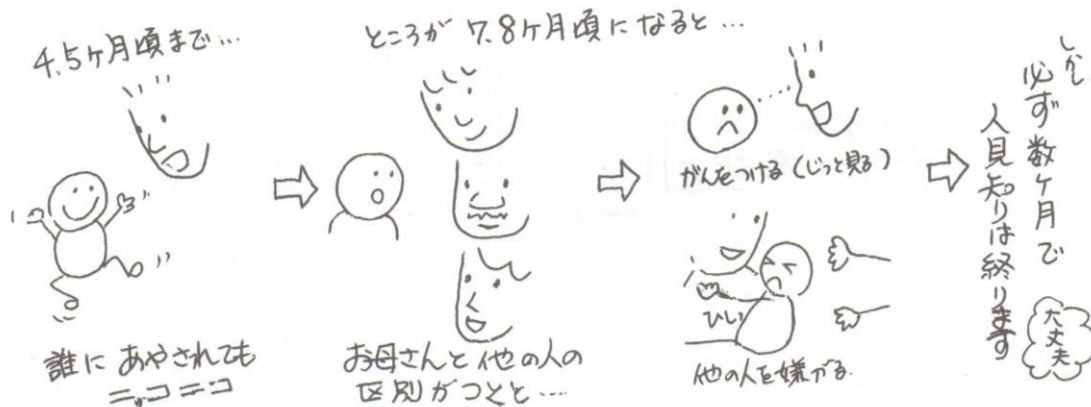 4.5ヶ月頃まで…
誰に あやされても
ニッコニコ
ところが 7.8ヶ月頃になると…
お母さんと他の人の
区別がつくと…
がんをつける(じっと見る)
ひしっ
他の人を嫌がる
しかし
必ず数ヶ月で
人見知りは終ります
大丈夫